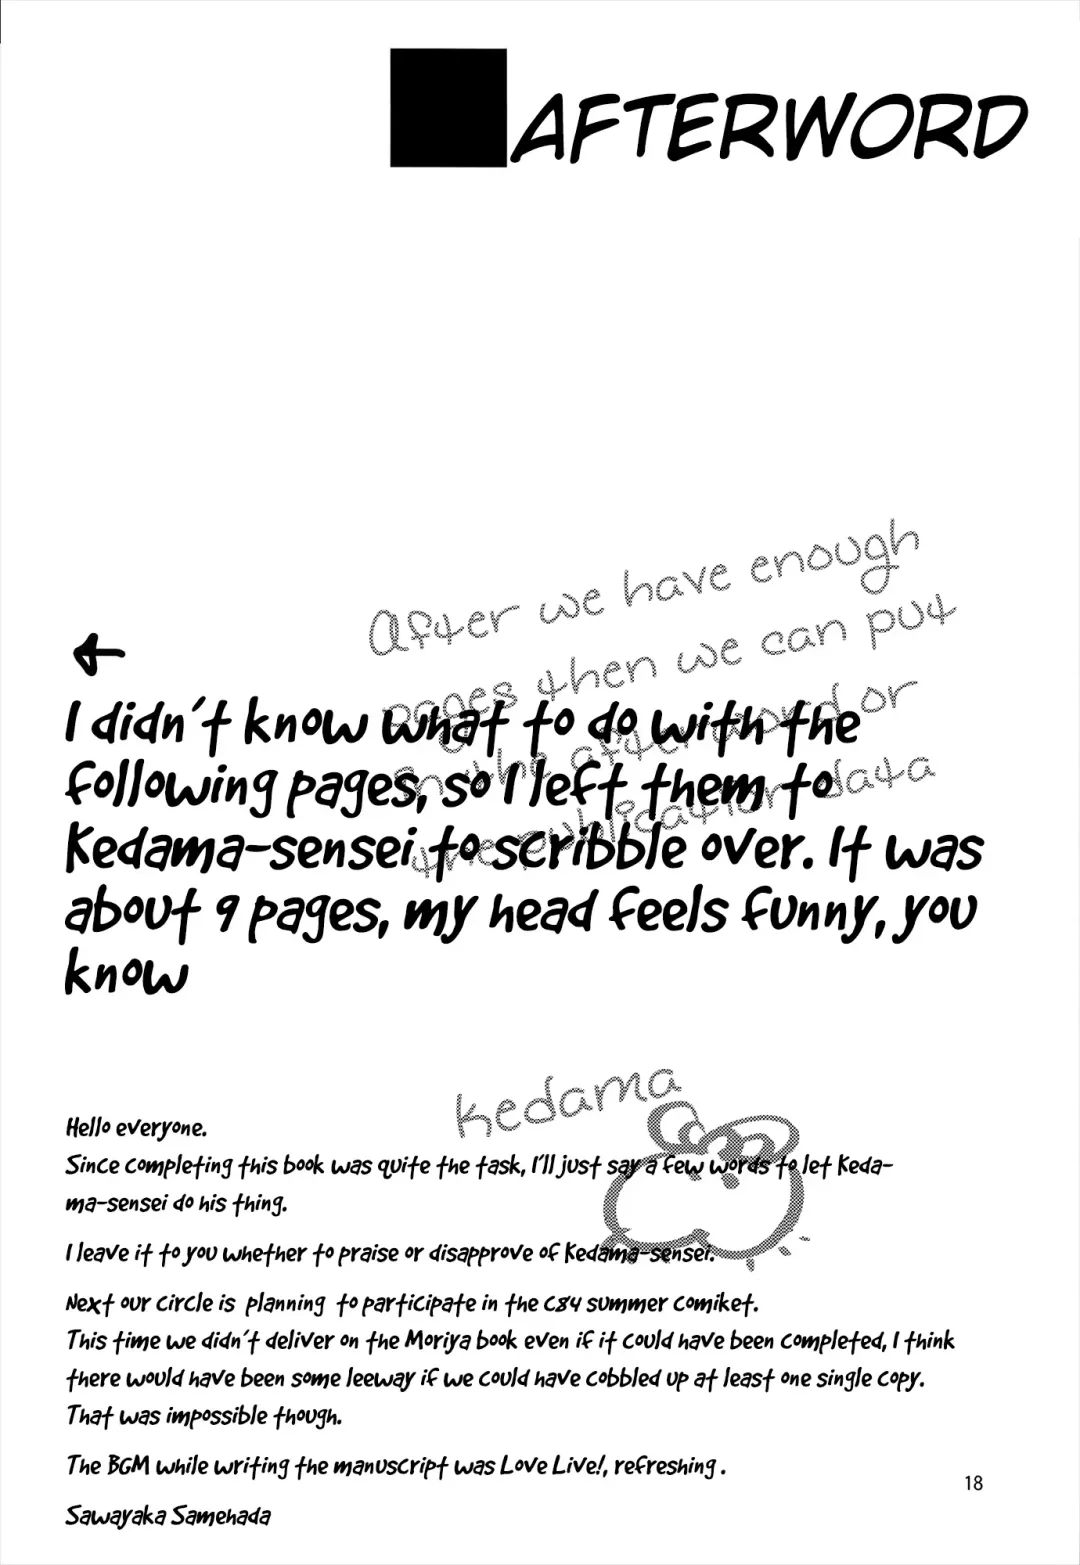 AFTERWORD
After we have enough
pages then we can put
in the afterword or
the publication data
←
I didn't know what to do with the
following pages, so I left them to
Kedama-sensei to scribble over. It was
about 9 pages, my head feels funny, you
know
kedama
Hello everyone.
Since completing this book was quite the task, I'll just say a few words to let Keda-
ma-sensei do his thing.
I leave it to you whether to praise or disapprove of Kedama-sensei.
Next our circle is planning to participate in the C84 summer Comiket.
This time we didn't deliver on the Moriya book even if it could have been completed, I think
there would have been some leeway if we could have cobbled up at least one single copy.
That was impossible though.
The BGM while writing the manuscript was Love Live!, refreshing .
18
Sawayaka Samehada